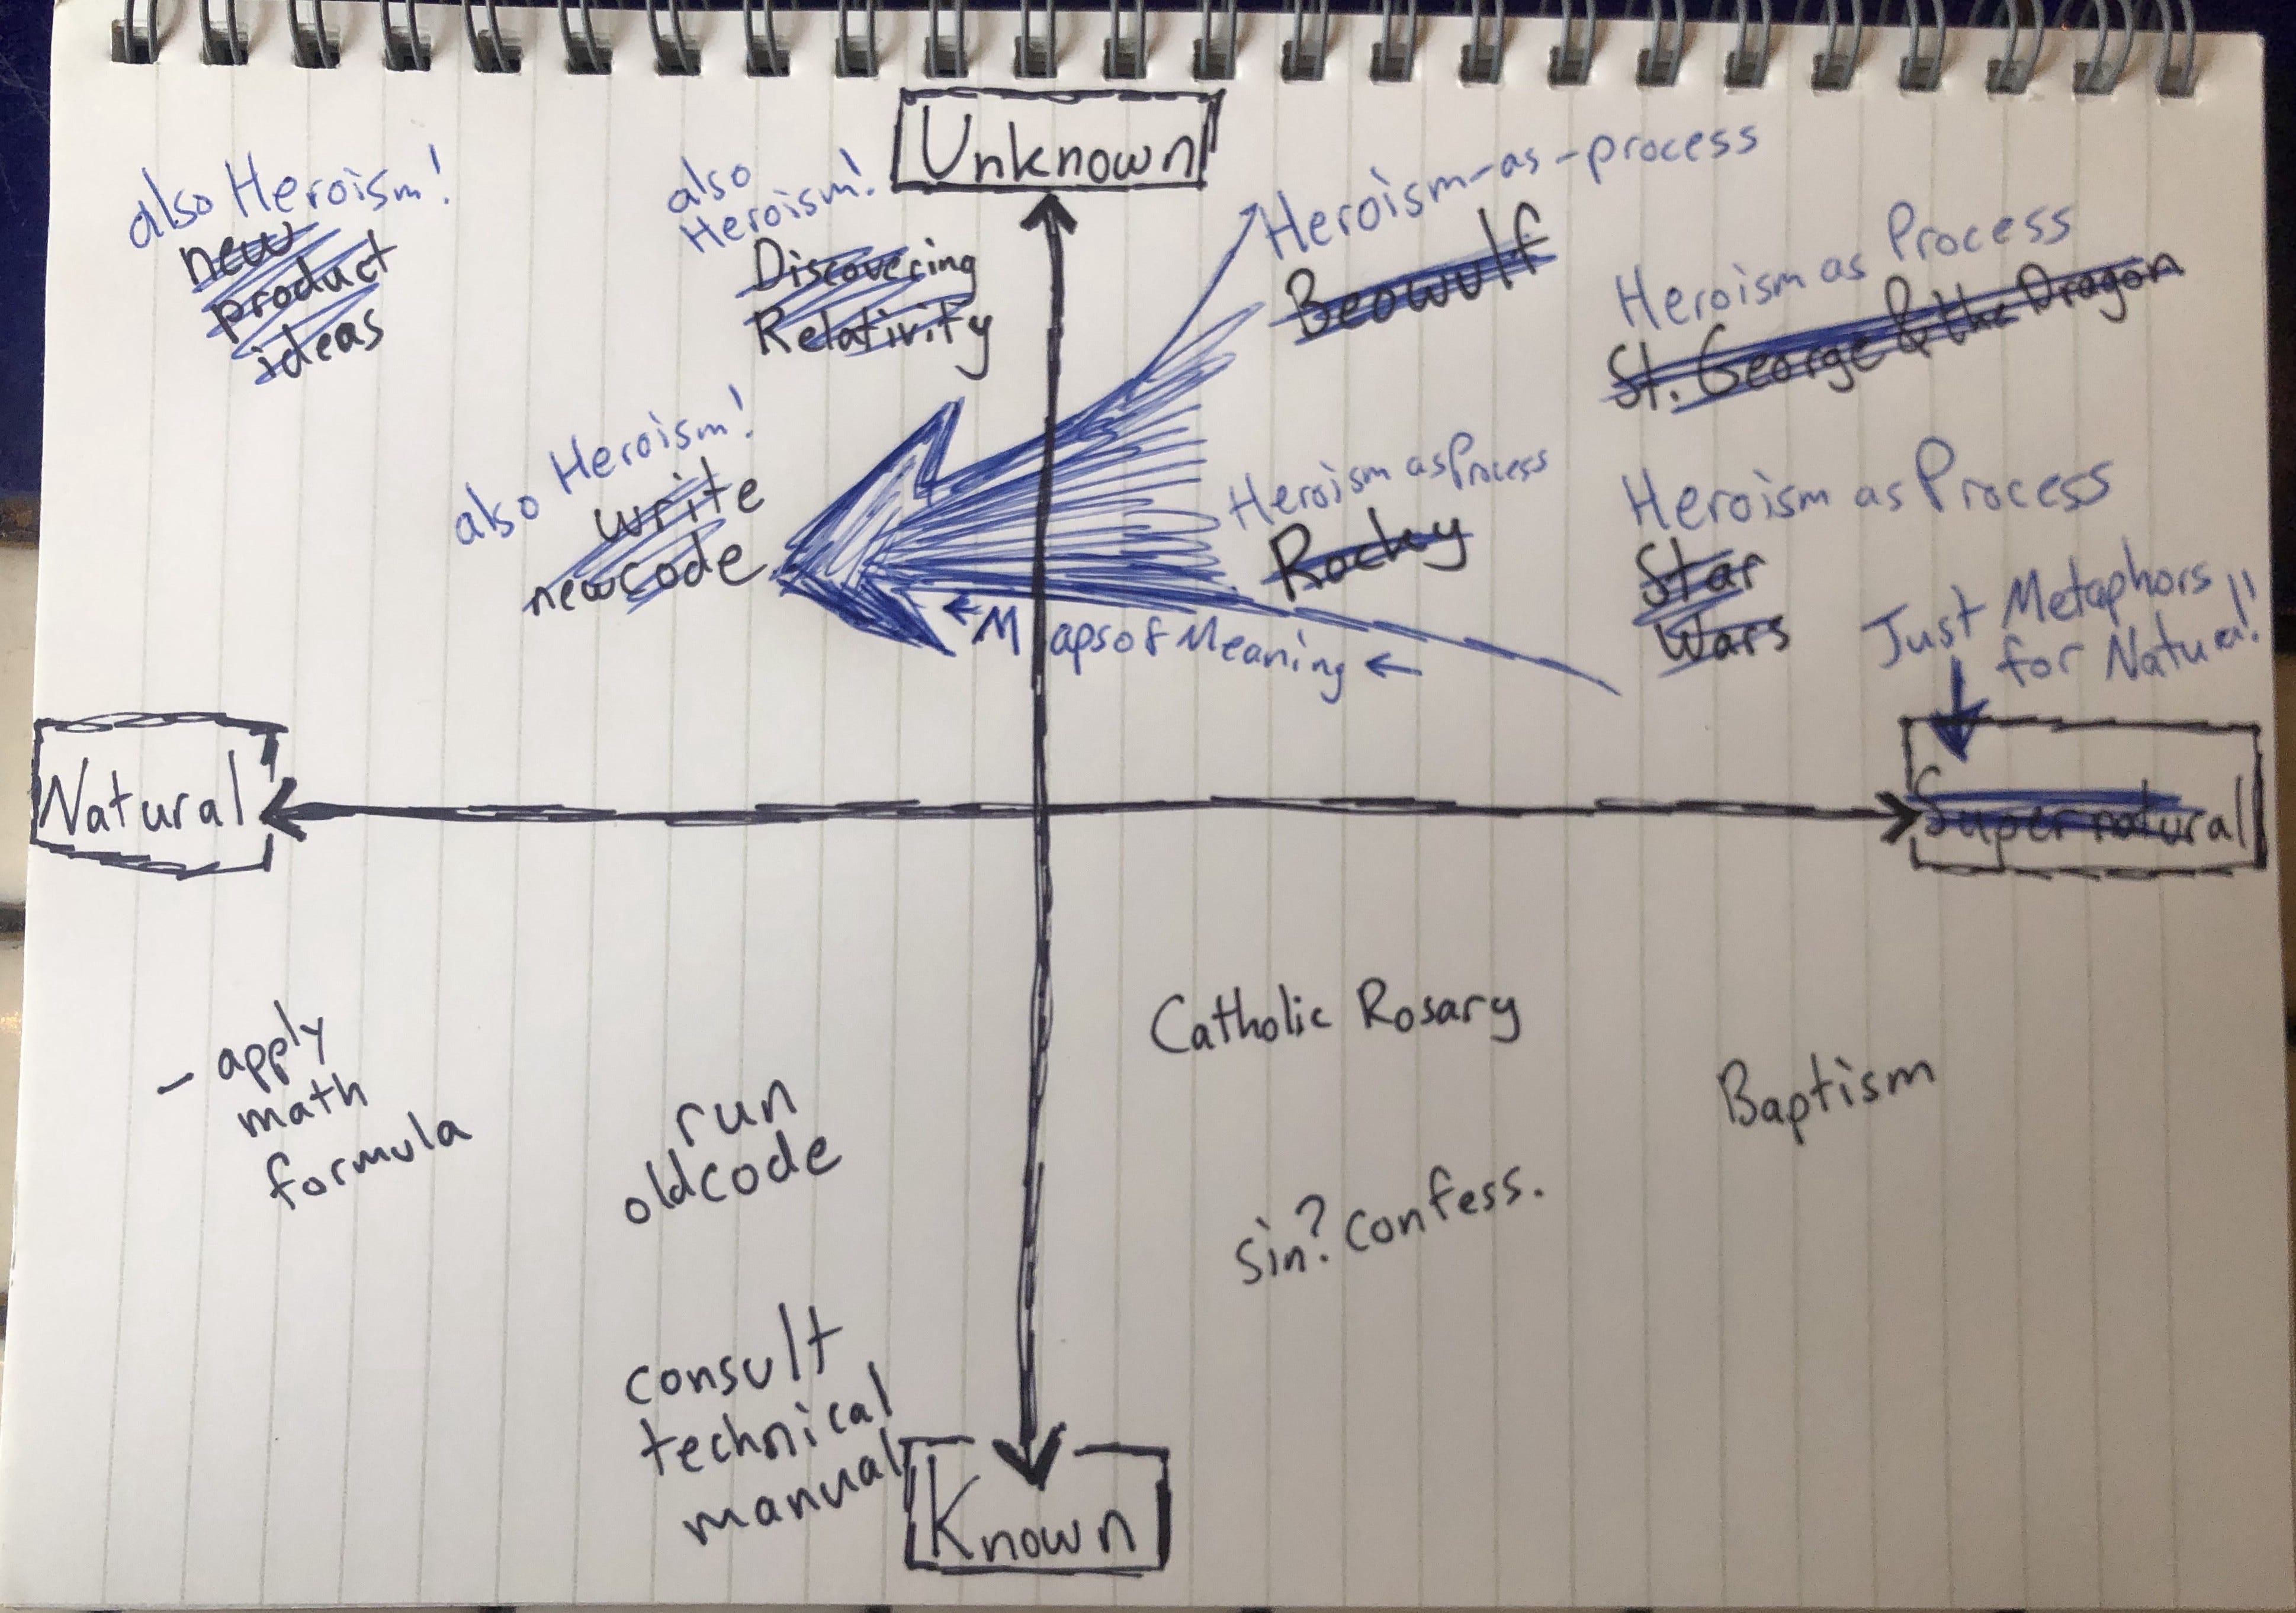 Unknown
also Heroism!
new
product
ideas
also
Heroism!
Discovering
Relativity
Heroism-as-process
Beowulf
Heroism as Process
St. George & the Dragon
also Heroism!
write
newcode
Heroism as Process
Rocky
Heroism as Process
Star
Wars
← Maps of Meaning ←
Just Metaphors
for Natural!
Natural
Supernatural
- apply
math
formula
run
oldcode
consult
technical
manual
Catholic Rosary
Baptism
sin? confess.
Known